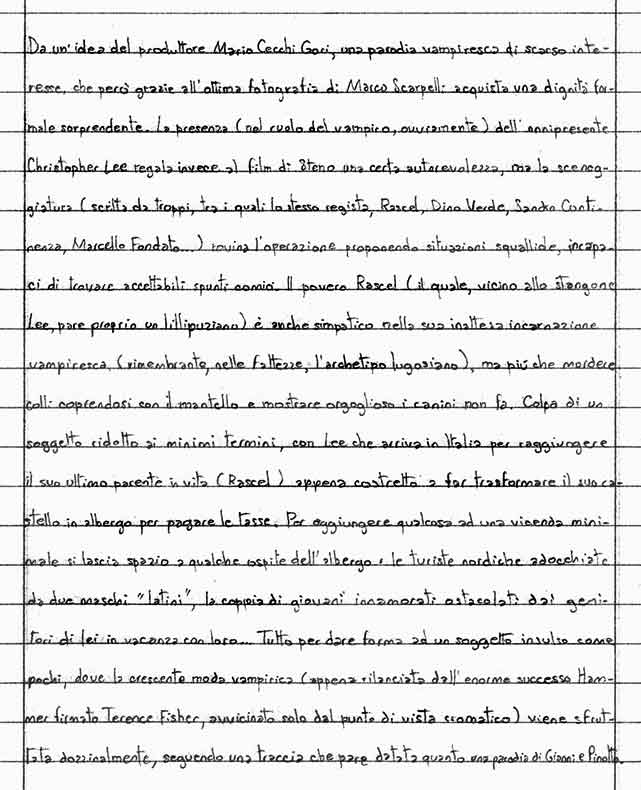 Da un'idea del produttore Mario Cecchi Gori, una parodia vampiresca di scarso inte-
resse, che però grazie all'ottima fotografia di Marco Scarpelli acquista una dignità for-
male sorprendente. La presenza (nel ruolo del vampiro, ovviamente) dell'onnipresente
Christopher Lee regala invece al film di Steno una certa autorevolezza, ma la sceneg-
giatura (scritta da troppi, tra i quali lo stesso regista, Rascel, Dino Verde, Sandro Conti-
nenza, Marcello Fondato...) rovina l'operazione proponendo situazioni squallide, incapa-
ci di trovare accettabili spunti comici. Il povero Rascel (il quale, vicino allo stangone
Lee, pare proprio un lillipuziano) è anche simpatico nella sua inattesa incarnazione
vampiresca (rimembrante, nelle fattezze, l'archetipo lugosiano), ma più che mordere
colli coprendosi con il mantello e mostrare orgoglioso i canini non fa. Colpa di un
soggetto ridotto ai minimi termini, con Lee che arriva in Italia per raggiungere
il suo ultimo parente in vita (Rascel) appena costretto a far trasformare il suo ca-
stello in albergo per pagare le tasse. Per aggiungere qualcosa ad una vicenda mini-
male si lascia spazio a qualche ospite dell'albergo: le turiste nordiche adocchiate
da due maschi "latini", la coppia di giovani innamorati ostacolati dai geni-
tori di lei in vacanza con loro... Tutto per dare forma ad un soggetto insulso come
pochi, dove la crescente moda vampirica (appena rilanciata dall'enorme successo Ham-
mer firmato Terence Fisher, avvicinato solo dal punto di vista cromatico) viene sfrut-
tata dozzinalmente, seguendo una traccia che pare datata quanto una parodia di Gianni e Pinotto.